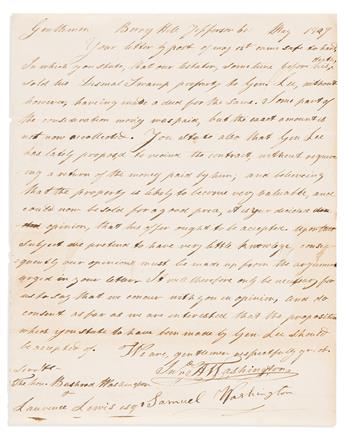 Gentlemen Berry Hill Jefferson Co May 1809
Your letter by post of may 12th came safe to hand,
In which you state, that our testator, sometime before his death,
sold his Dismal Swamp property to Genl Lee, without
however, having made a deed for the same. Some part of
the consideration money was paid, but the exact amount is
not now recollected. You state also that Gen Lee
has lately proposed to rescind the contract, without requiring
a return of the money paid by him, and believing
that the property is likely to become very valuable, and
could now be sold for a good price, it is your decided
opinion, that his offer ought to be accepted. Upon this
subject we pretend to have very little knowledge, conse-
quently our opinions must be made up from the arguments
urged in your letter. It will therefore only be necessary for
us to say that we concur with you in opinion, and do
consent as far as we are interested that the proposition
which you state to have been made by Gen Lee should
be accepted of. We are, gentlemen respectfully yr ob
Servts
The honr Bushrod Washington
&
Lawrence Lewis esqr Samuel Washington